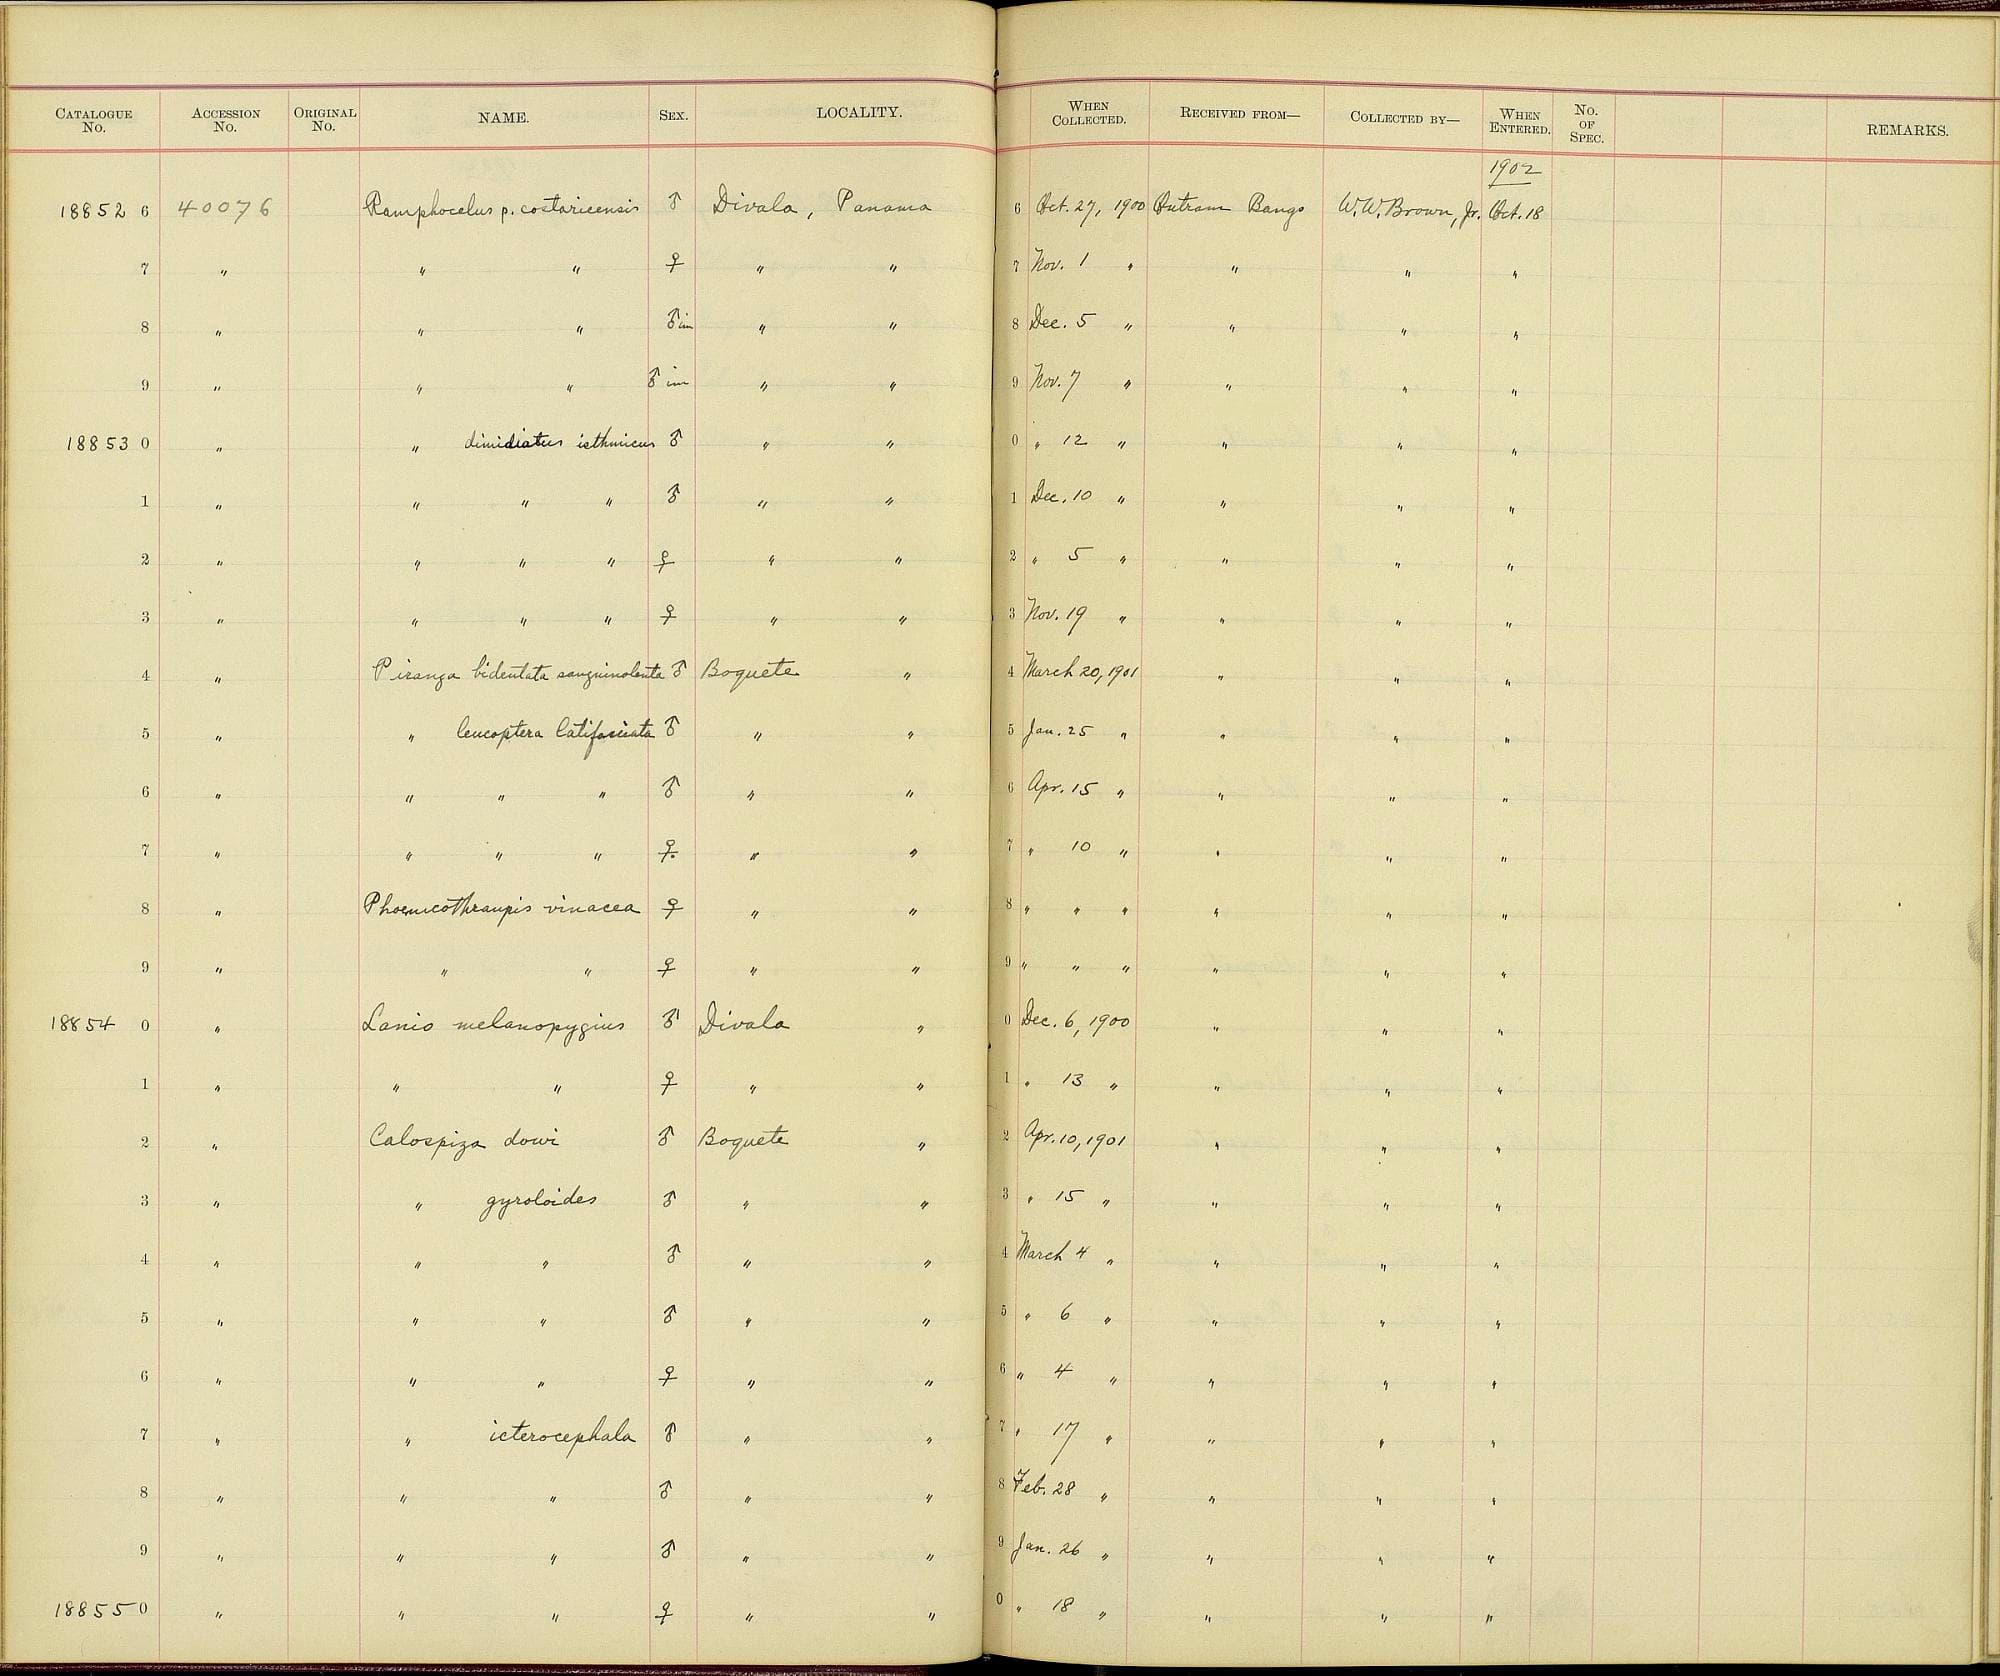 CATALOGUE No. ACCESSION No. ORIGINAL No. NAME. SEX. LOCALITY. WHEN COLLECTED. RECEIVED FROM— COLLECTED BY— WHEN ENTERED. No. OF SPEC. REMARKS.
1902
18852 6 40076 Ramphocelus p. costaricensis ♂ Divala, Panama 6 Oct. 27, 1900 Outram Bangs W.W. Brown, Jr. Oct. 18
7 " " " ♀ " " 7 Nov. 1 " " " "
8 " " " ♂ im " " 8 Dec. 5 " " " "
9 " " " ♂ im " " 9 Nov. 7 " " " "
18853 0 " " dimidiatus isthmicus ♂ " " 0 " 12 " " " "
1 " " " " ♂ " " 1 Dec. 10 " " " "
2 " " " " ♀ " " 2 " 5 " " " "
3 " " " " ♀ " " 3 Nov. 19 " " " "
4 " Piranga bidentata sanguinolenta ♂ Boquete " 4 March 20, 1901 " " "
5 " " leucoptera latifasciata ♂ " " 5 Jan. 25 " " " "
6 " " " " ♂ " " 6 Apr. 15 " " " "
7 " " " " ♀ " " 7 " 10 " " " "
8 " Phoenicothraupis vinacea ♀ " " 8 " " " " " "
9 " " " ♀ " " 9 " " " " " "
18854 0 " Lanio melanopygius ♂ Divala " 0 Dec. 6, 1900 " " "
1 " " " ♀ " " 1 " 13 " " " "
2 " Calospiza dowi ♂ Boquete " 2 Apr. 10, 1901 " " "
3 " " gyroloides ♂ " " 3 " 15 " " " "
4 " " " ♂ " " 4 March 4 " " " "
5 " " " ♂ " " 5 " 6 " " " "
6 " " " ♀ " " 6 " 4 " " " "
7 " " icterocephala ♂ " " 7 " 17 " " " "
8 " " " ♂ " " 8 Feb. 28 " " " "
9 " " " ♂ " " 9 Jan. 26 " " " "
18855 0 " " " ♀ " " 0 " 18 " " " "